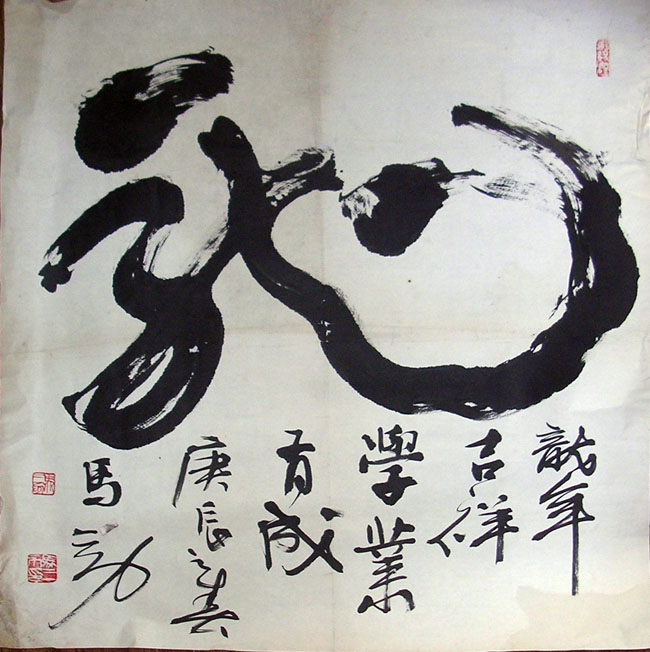 龍
龍年
吉祥
學業
有成
庚辰之春
馬